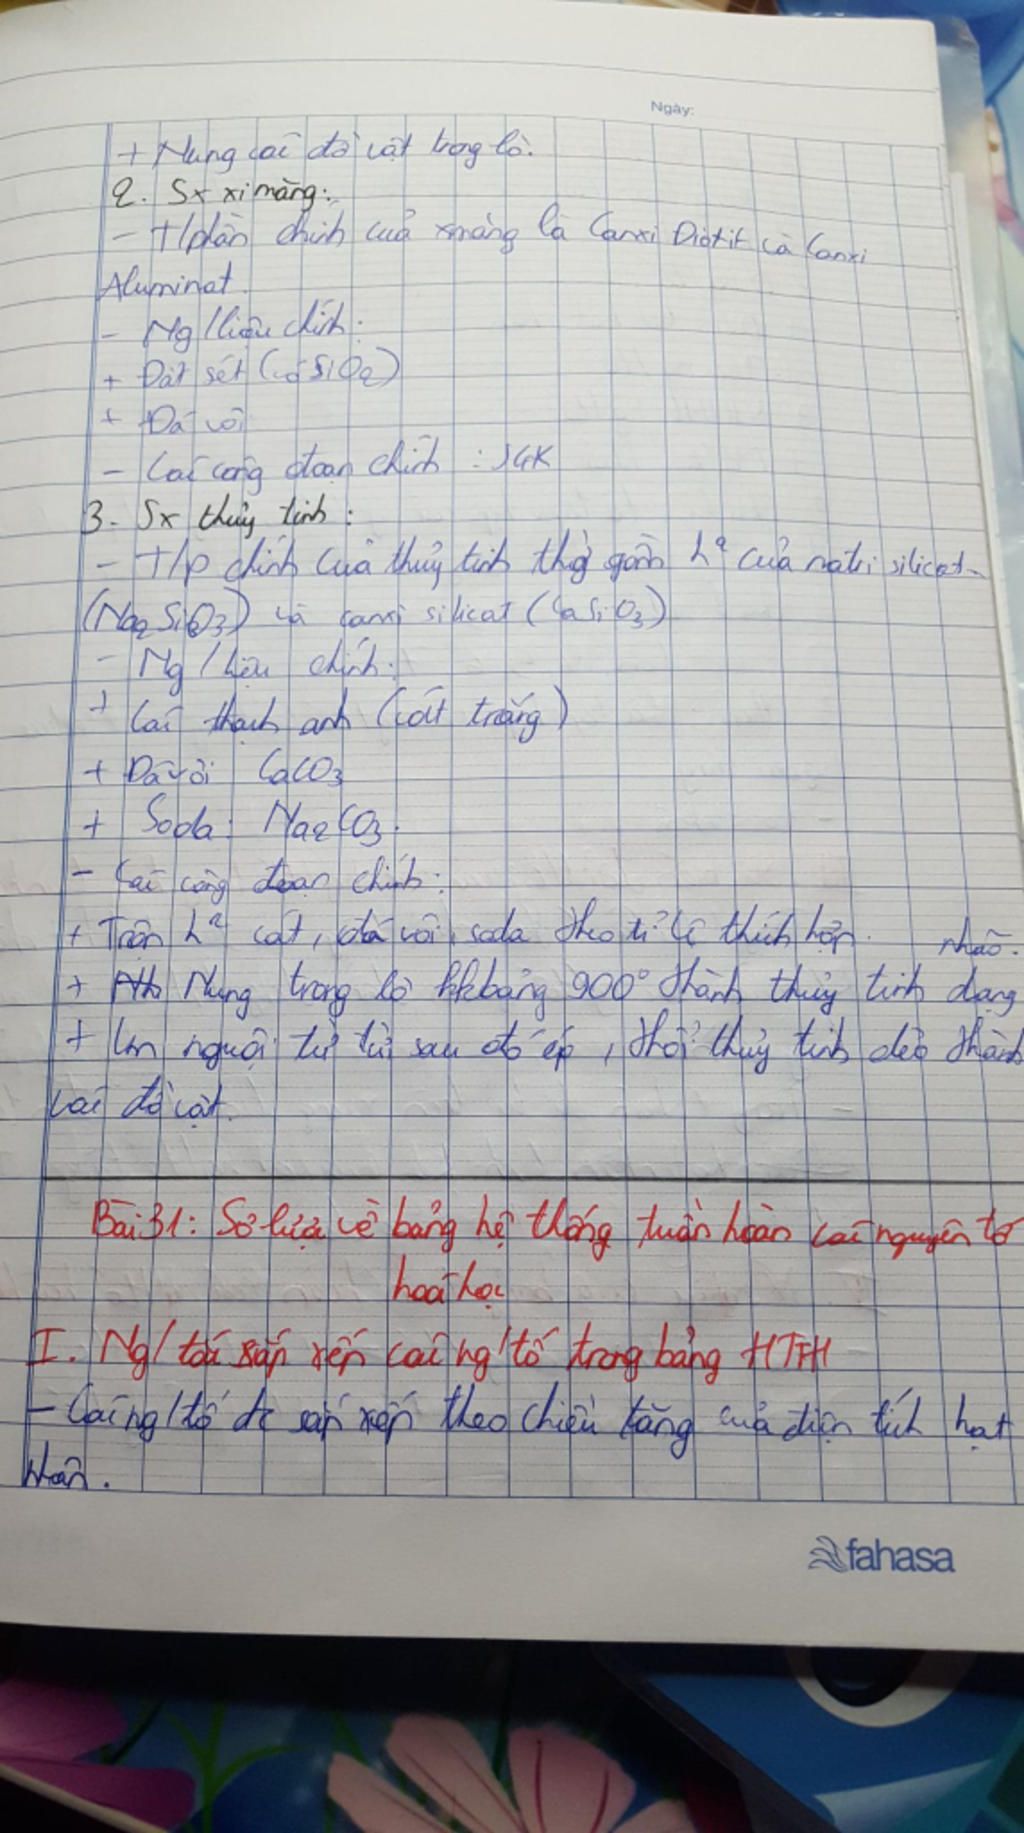 Ngày:
+ Nung các đồ vật trong lò.
2. Sx xi măng:
- T/phần chính của xmăng là Canxi và Canxi
Aluminat.
- Ng/liệu chính:
+ Đất sét (có SiO2)
+ Đá vôi
- Các công đoạn chính : SGK
3. Sx thủy tinh :
- T/p chính của thủy tinh thg gồm h² của natri silicat
(Na2SiO3) và canxi silicat (CaSiO3)
- Ng/liệu chính:
+ Cát thạch anh (cát trắng)
+ Đá vôi CaCO3
+ Soda: Na2CO3.
- Các công đoạn chính:
+ Trộn h² cát, đá vôi, soda theo tỉ lệ thích hợp.
+ Nung trong lò khoảng 900° thành thủy tinh dạng nhão.
+ Làm nguội từ từ sau đó ép, thổi thủy tinh dẻo thành
các đồ vật.
Bài 31: Sơ lược về bảng hệ thống tuần hoàn các nguyên tố
hoá học
I. Ng/tắc sắp xếp các ng/tố trong bảng HTTH
- Các ng/tố đc sắp xếp theo chiều tăng của điện tích hạt
nhân.
fahasa